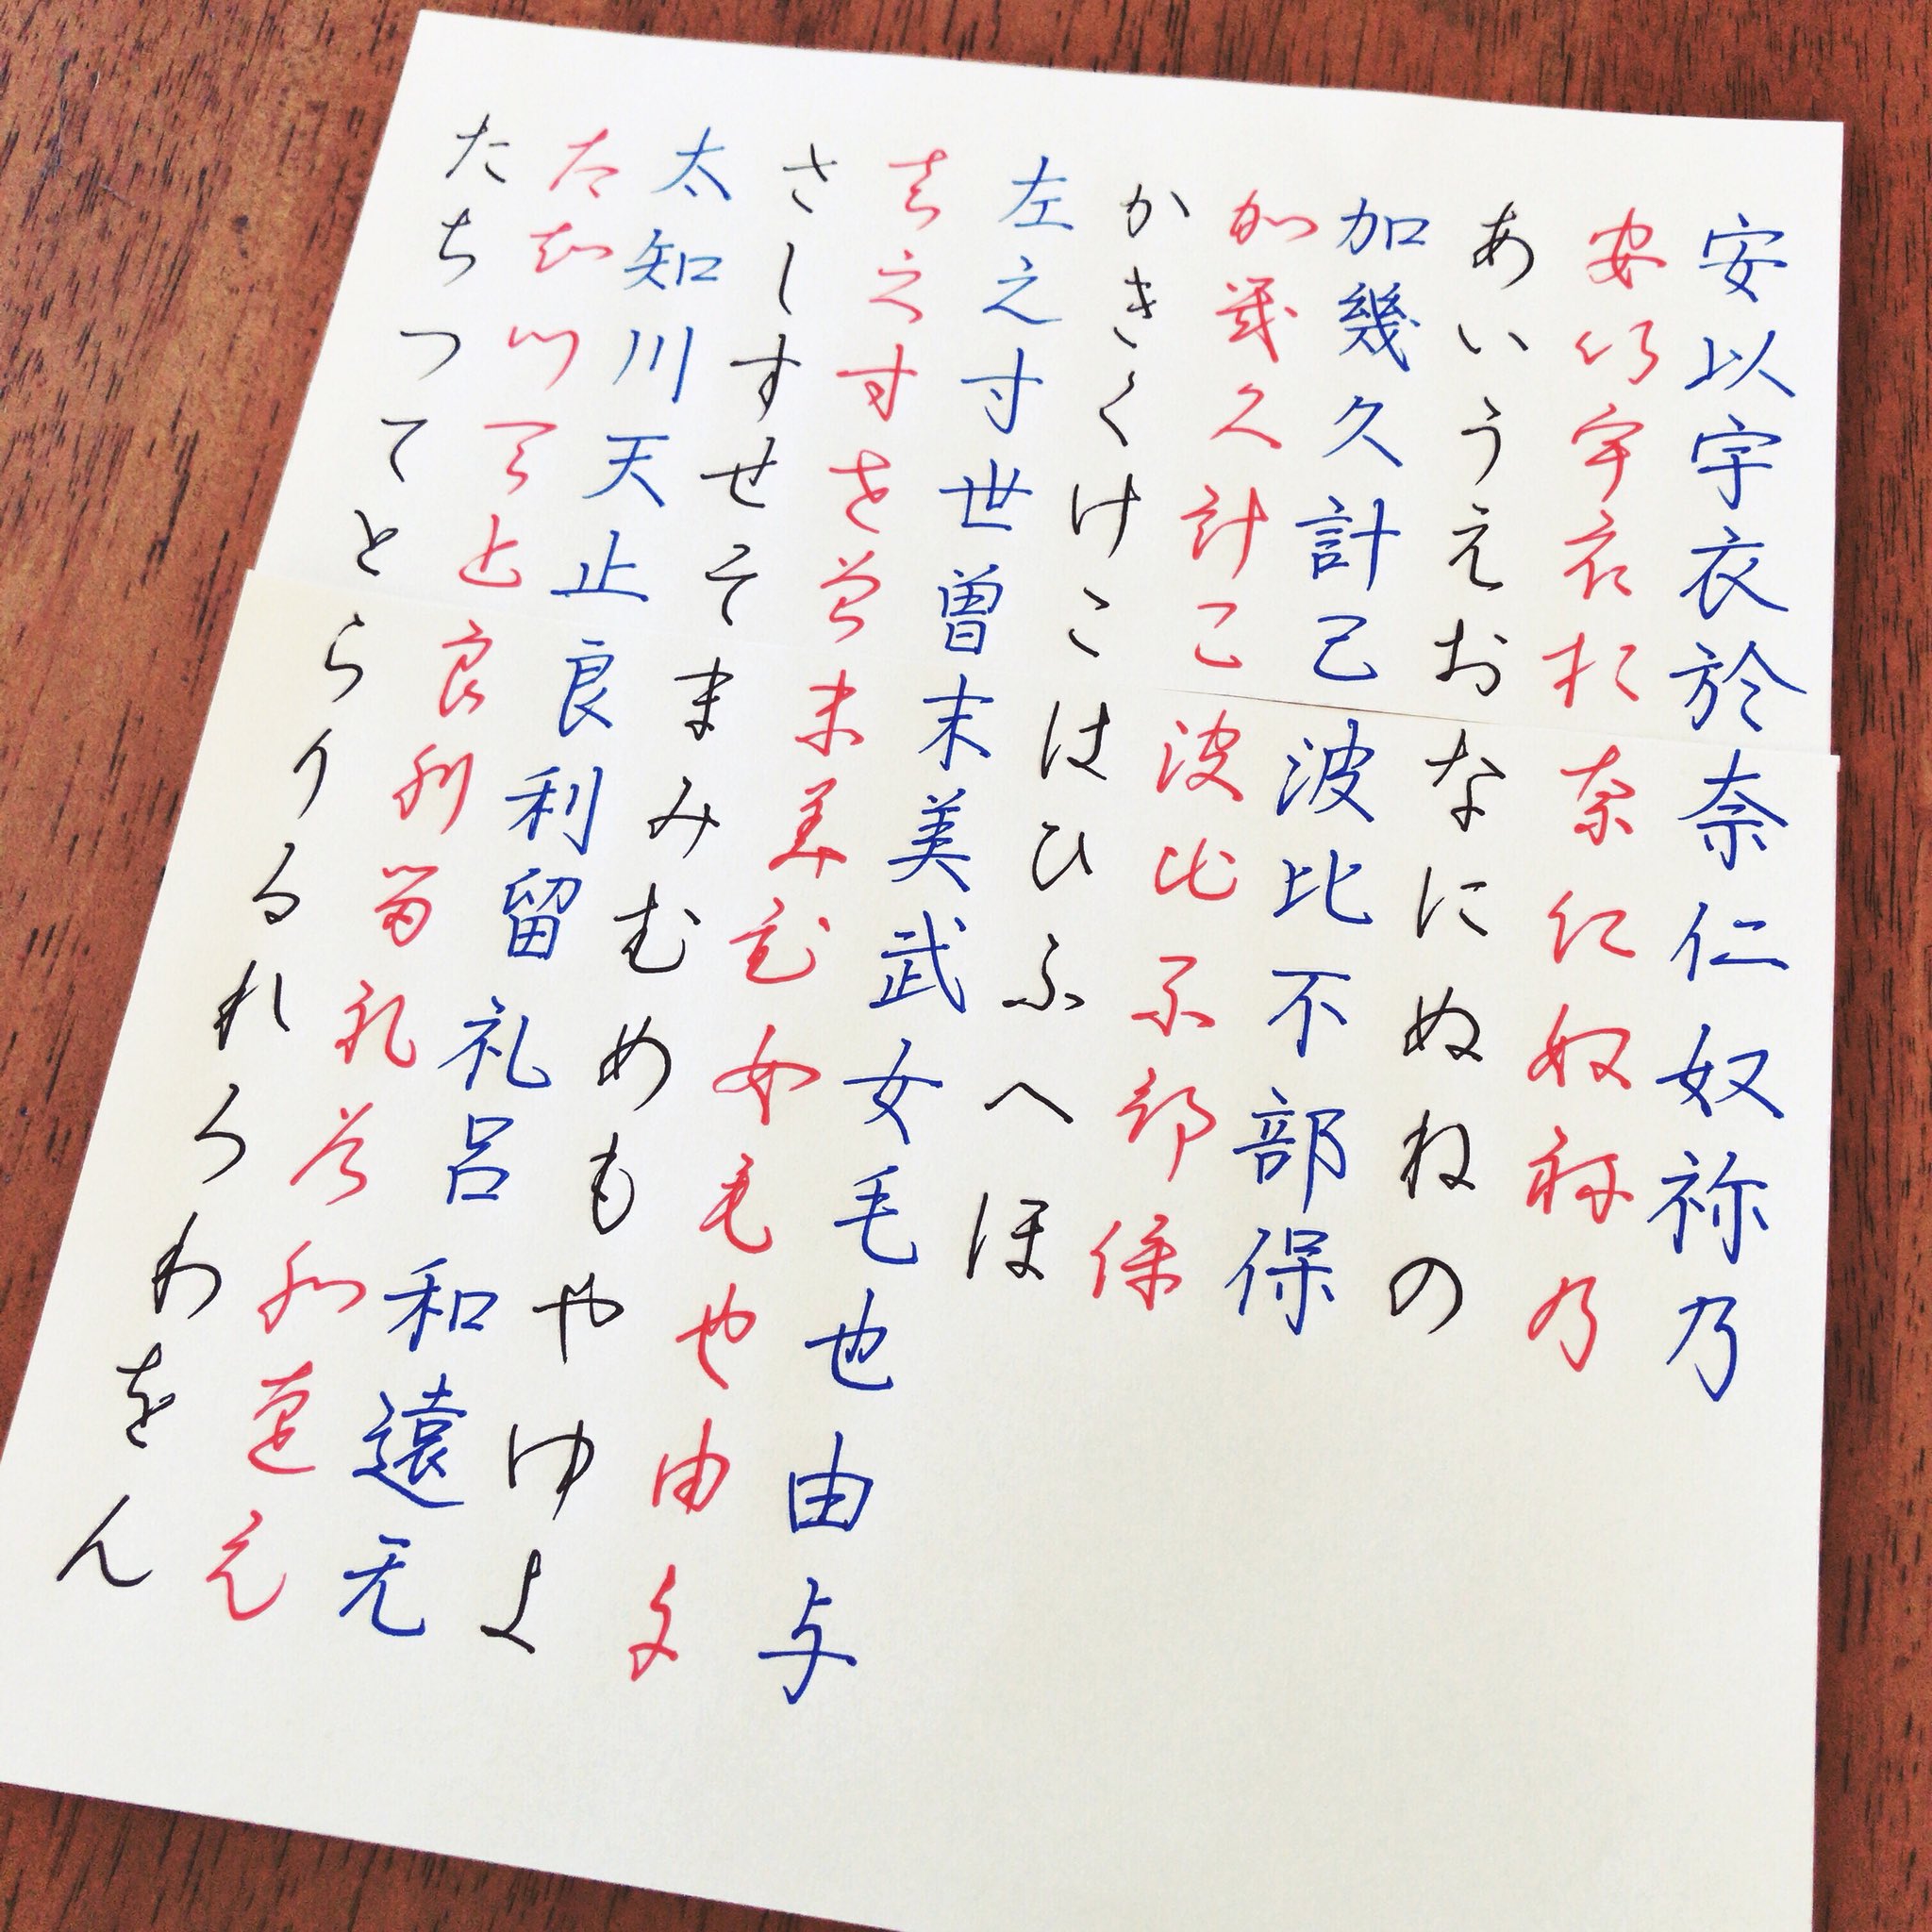 安以宇衣於奈仁奴祢乃
安以宇衣於奈仁奴祢乃
あいうえおなにぬねの
加幾久計己波比不部保
加幾久計己波比不部保
かきくけこはひふへほ
左之寸世曽末美武女毛也由与
左之寸世曽末美武女毛也由与
さしすせそまみむめもやゆよ
太知川天止良利留礼呂和遠无
太知川天止良利留礼呂和遠无
たちつてとらりるれろわをん